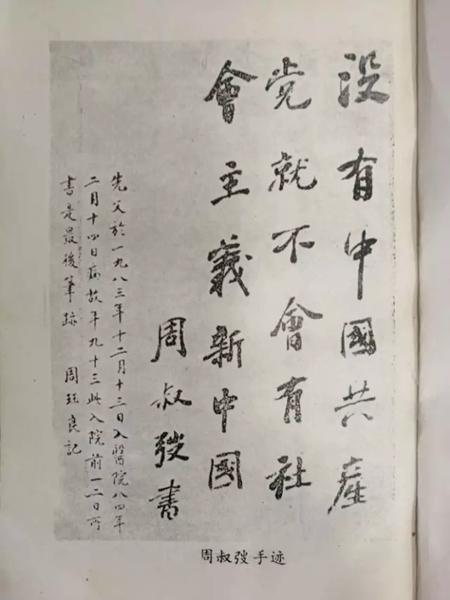 没有中國共產
党就不會有社
會主義新中國
周叔弢書
先父於一九八三年十二月十三日入醫院八四年
二月十四日病故年九十三此入院前一二日所
書是最後筆跡 周珏良記
周叔弢手迹